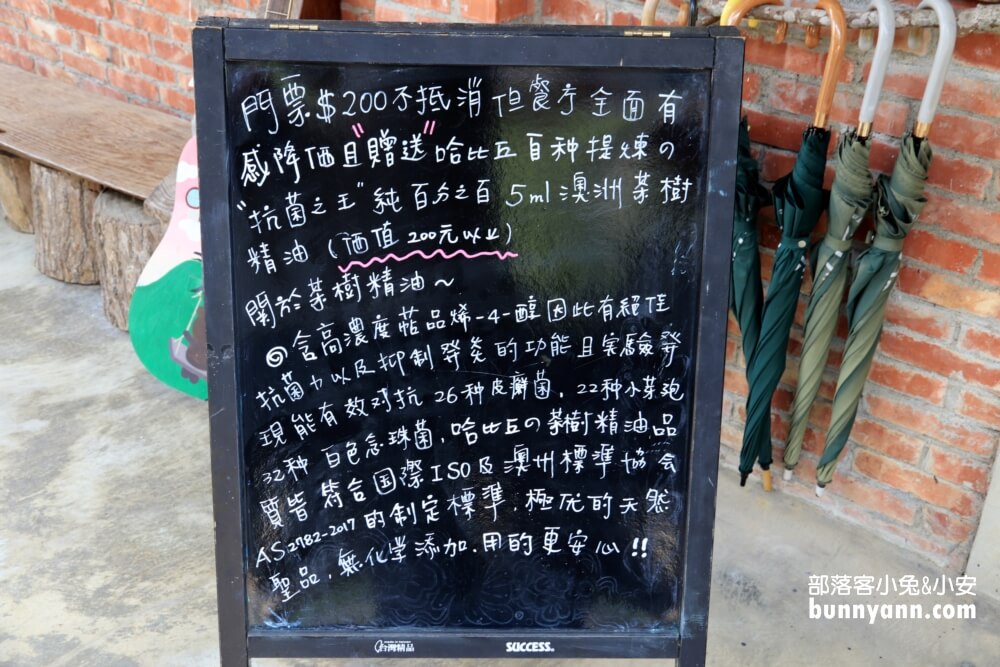 門票$200不抵消但餐廳全面有
感降価且"贈送"哈比丘百种提煉の
"抗菌之王"純百分之百 5ml澳洲茶樹
精油(価值200元以上)
關於茶樹精油~
◎含高濃度萜品烯-4-醇因此有絕佳
抗菌力以及抑制發炎的功能且実驗發
現能有效对抗26种皮癬菌.22种小芽孢
32种 白色念珠菌,哈比丘の茶樹精油品
質皆符合国際ISO及澳州標準協会
AS2782-2017的制定標準.極优的天然
聖品,無化学添加.用的更安心!!
台灣精品
SUCCESS
部落客小兔&小安
bunnyann.com